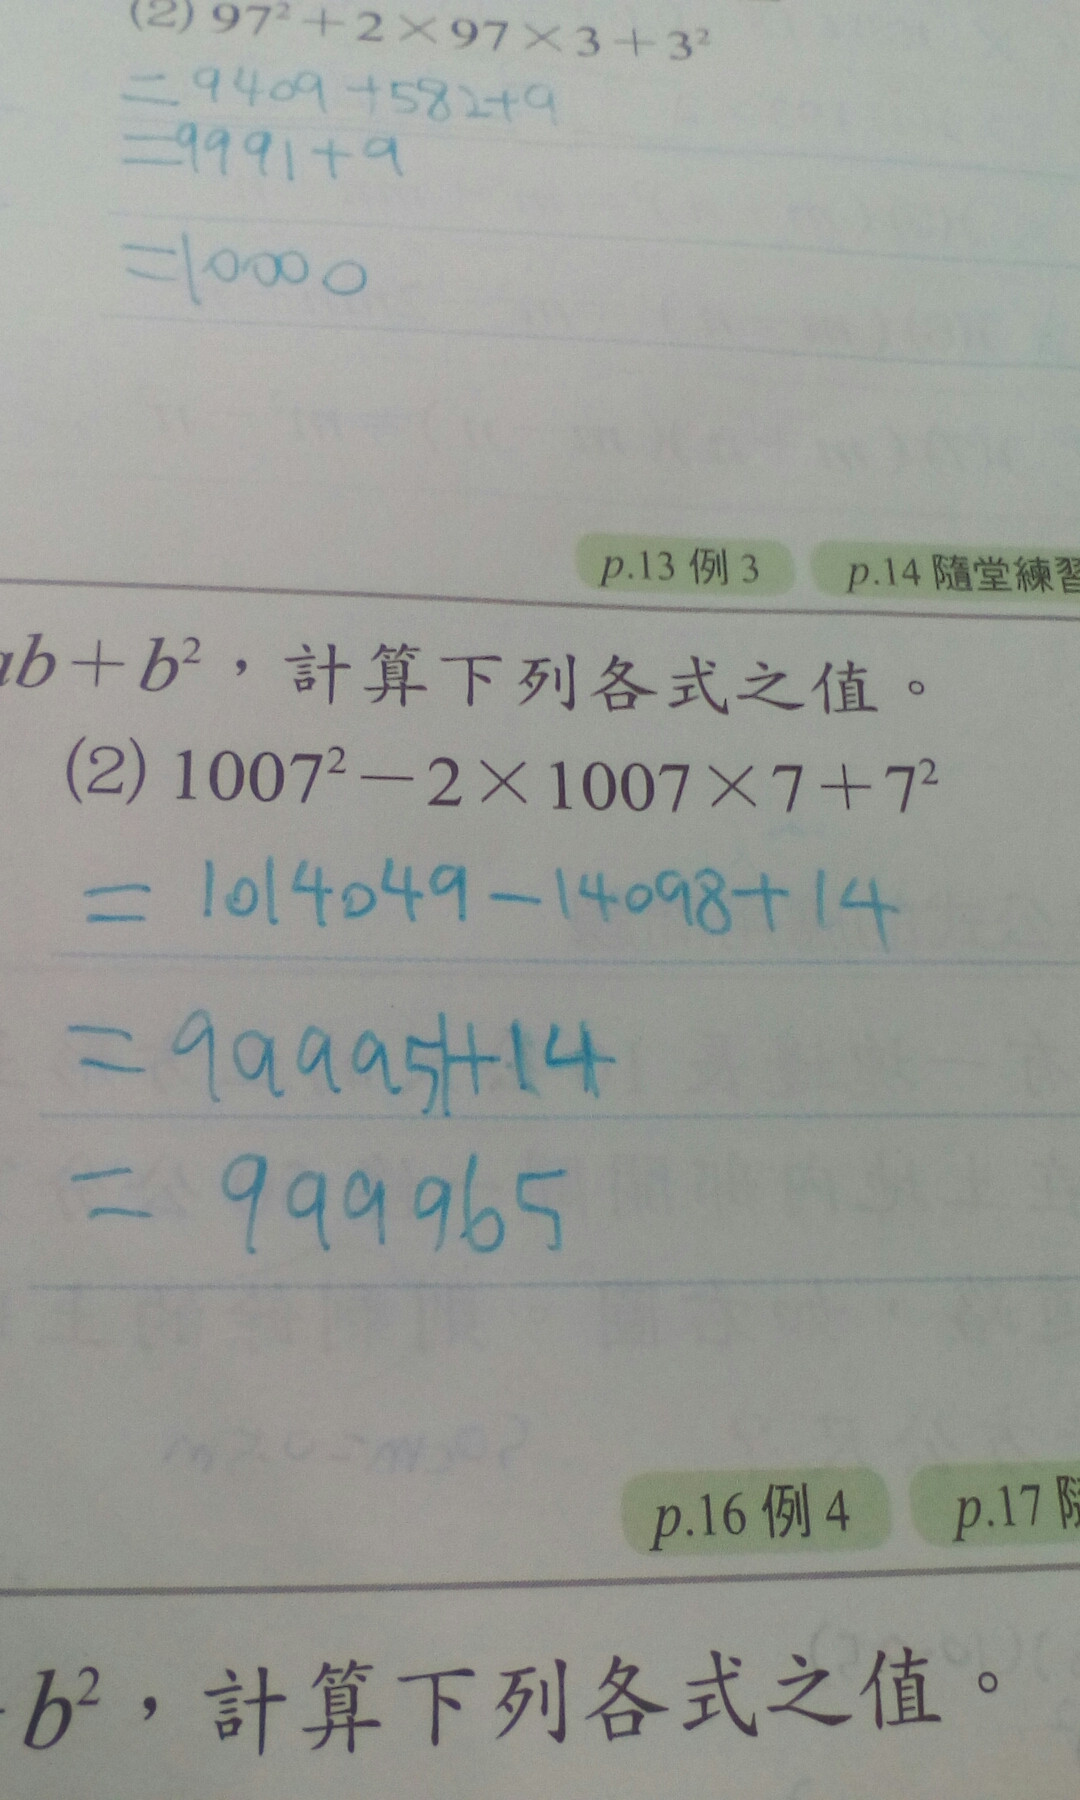 (2) 97²＋2×97×3＋3²
=9409+582+9
=9991+9
=10000
p.13 例3 p.14 隨堂練習
ab＋b²，計算下列各式之值。
(2) 1007²－2×1007×7＋7²
= 1014049-14098+14
= 999951+14
= 999965
p.16 例4 p.17 隨
b²，計算下列各式之值。